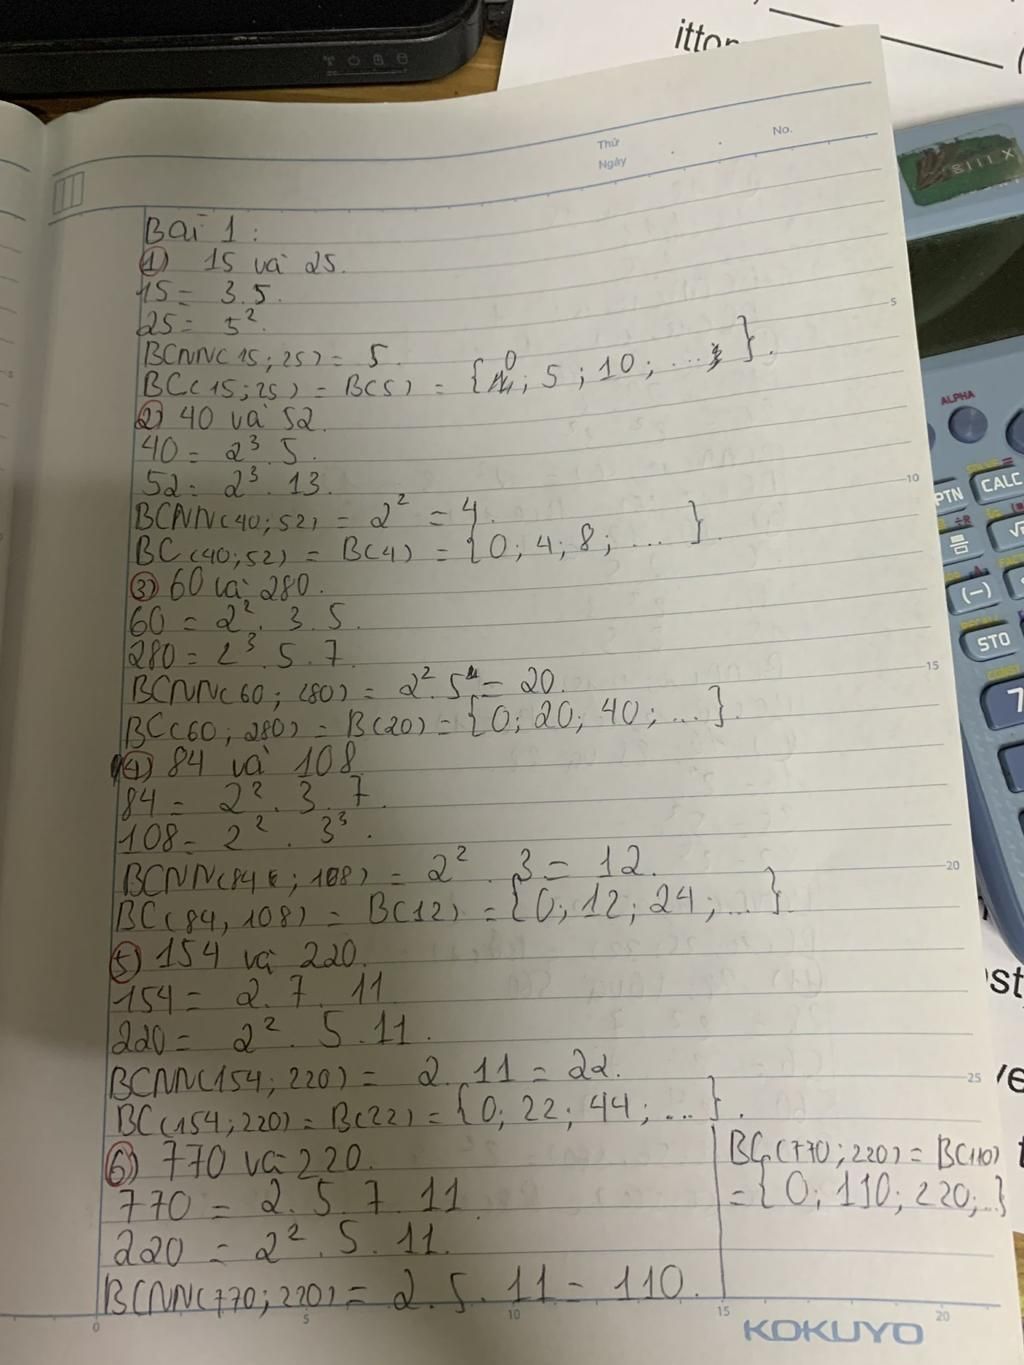 ittor
Thứ
Ngày
No.
Bài 1:
1) 15 và 25.
15 = 3.5.
25 = 5².
BCNN(15;25) = 5.
BC(15;25) = B(5) = {0; 5; 10; ...}.
2) 40 và 52.
40 = 2³.5.
52 = 2³.13.
BCNN(40;52) = 2² = 4.
BC(40;52) = B(4) = {0; 4; 8; ...}.
3) 60 và 280.
60 = 2².3.5.
280 = 2³.5.7.
BCNN(60; 280) = 2².5 = 20.
BC(60; 280) = B(20) = {0; 20; 40; ...}.
4) 84 và 108
84 = 2².3.7.
108 = 2².3³.
BCNN(84; 108) = 2².3 = 12.
BC(84, 108) = B(12) = {0; 12; 24; ...}.
5) 154 và 220.
154 = 2.7.11
220 = 2².5.11.
BCNN(154; 220) = 2.11 = 22.
BC(154; 220) = B(22) = {0; 22; 44; ...}.
6) 770 và 220.
770 = 2.5.7.11.
220 = 2².5.11.
BCNN(770; 220) = 2.5.11 = 110.
BC(770; 220) = B(110)
= {0; 110; 220; ...}
5
10
15
20
25
0
5
10
15
20
KOKUYO
ALPHA
CALC
STO
(−)
7